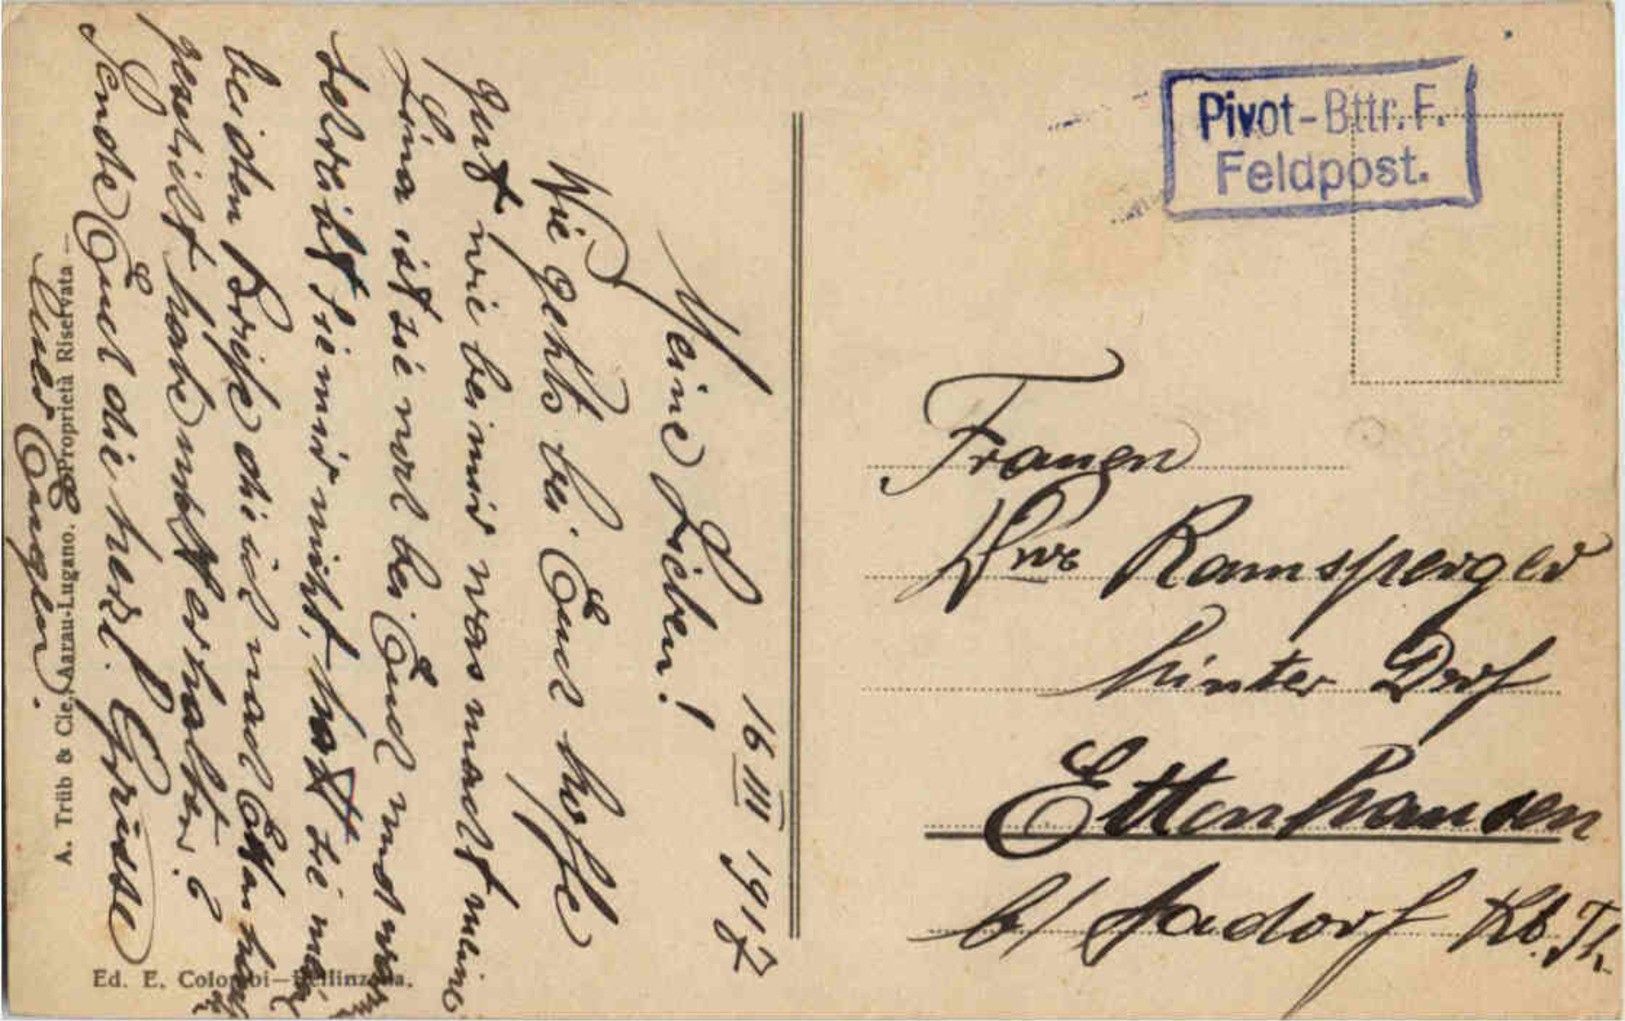 16 III 1917
Meine Lieben!
Wie gehts bei Euch hoffe
gut wie bei mir was macht meine
Lina ist sie noch bei Euch und
schreibt sie mir nicht, hatt sie
beiden Briefe die ich nach
geschikt habe nicht erhalten?
Sende Euch die herzl. Grüsse
Euer Eugen.
A. Trüb & Cie. Aarau-Lugano. Proprietà Riservata –
Ed. E. Colombi–Bellinzona.
Pivot-Bttr. F.
Feldpost.
Frauen
Wwe Ramsperger
hinter Dorf
Ettenhausen
b/ Aadorf Kt. Th.